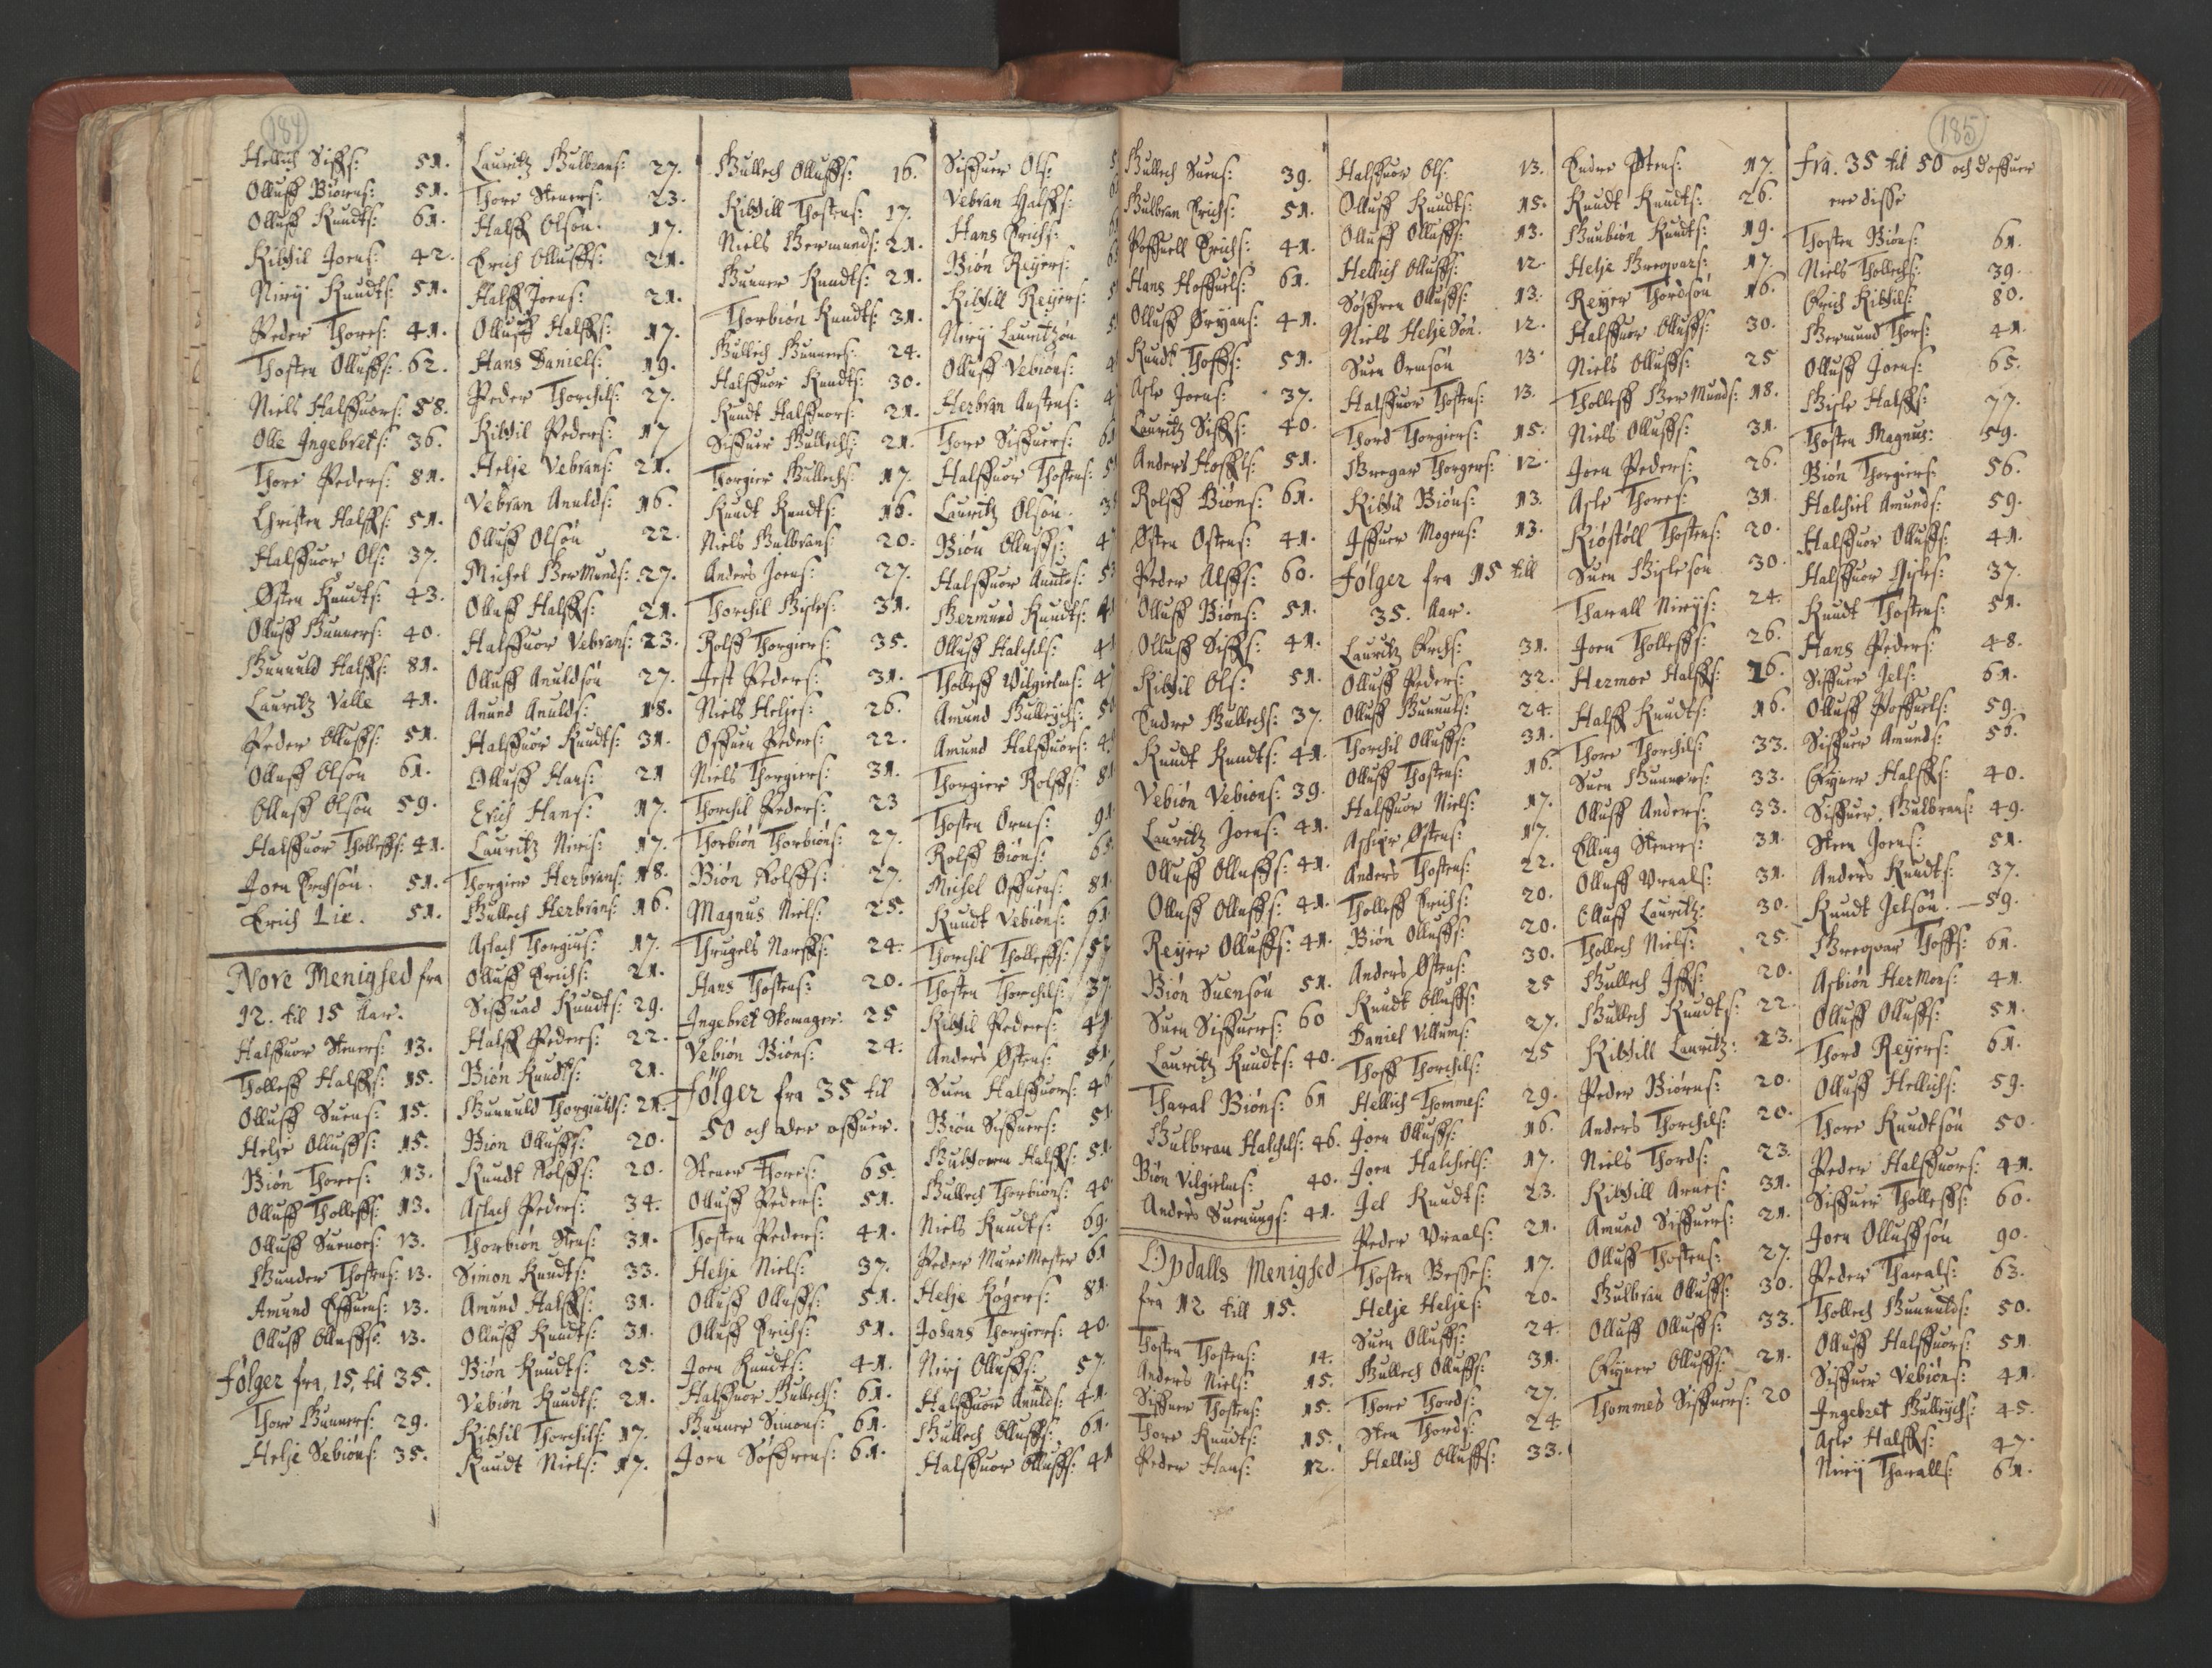 184
Hellich Siffs: 51.
Olluff Biørns: 51.
Olluff Knudts: 61.
Kittil Joens: 42.
Nirij Knudts: 51.
Peder Thores: 41.
Thosten Olluffs: 62.
Niels Halffuors: 58.
Olle Ingebrets: 36.
Thore Peders: 81.
Christen Halffs: 51.
Halffuor Ols: 37.
Østen Knudts: 43.
Olluff Gunners: 40.
Gunnuld Halffs: 81.
Lauritz Valle 41.
Peder Olluffs: 51.
Olluff Olson 61.
Olluff Olson 59.
Halffuor Tholleffs: 41.
Joen Erichsøn. 51.
Erich Lie. 51.
Nore Menighed fra
12. til 15 Aar.
Halffuor Steners: 13.
Tholleff Halffs: 15.
Olluff Suens: 15.
Helje Olluffs: 15.
Biøn Thores: 13.
Olluff Tholleffs: 13.
Olluff Suenors: 13.
Gunder Thostens: 13.
Amund Effuens: 13.
Olluff Olluffs: 13.
følger fra, 15, til 35.
Thore Gunners: 29.
Helje Sebiøns: 35.
Lauritz Gulbrans: 27.
Thore Steners: 23.
Halff Olson. 17.
Erich Olluffs: 21.
Halff Joens: 21.
Olluff Halffs: 17.
Hans Daniels: 19.
Peder Thorchils: 27.
Kittil Peders: 17
Helje Vebrans: 21.
Vebran Anulds: 16.
Olluff Olsøn 22.
Michel GerMunds: 27.
Olluff Halffs: 21.
Halffuor Vebrans: 23.
Olluff Anuldsøn 27.
Anund Anulds: 18.
Halffuor Knudts: 31.
Olluff Hans: 21
Erich Hans: 17.
Lauritz Niris: 17.
Thorgier Herbrans: 18.
Gullech Herbrans: 16.
Aslach Thorgius: 17.
Olluff Erichs: 21.
Siffued Knudts: 29.
Halff Peders: 22.
Biøn Knudts: 21.
Gunnuld Thorgiulds: 21.
Biøn Olluffs: 20.
Knudt Rolffs: 20.
Aslach Peders: 34.
Thorbiøn Stens: 31.
Simon Knudts: 33.
Amund Halffs: 31.
Olluff Knudts: 31.
Biøn Knudts: 25.
Vebiøn Knudts: 21.
Kittil Thorchils: 17.
Knudt Niels: 17.
Gullech Olluffs: 16.
Kittill Thostens: 17.
Niels Germunds: 21.
Gunner Knudts: 21.
Thorbiøn Knudts: 31.
Gullich Gunners: 24.
Halffuor Knudts: 30.
Knudt Halffuors: 21.
Siffuer Gullechs: 21.
Thorgier Gullechs: 17.
Knudt Knudts: 16.
Niels Gulbrans: 20.
Anders Joens: 27.
Thorchil Gisles: 31.
Rolff Thorgiers: 35.
Jest Peders: 31.
Niels Heljes: 26.
Offuen Peders: 22.
Niels Thorgiers: 31.
Thorchil Peders: 23
Thorbiøn Thorbiøns: 27.
Biøn Rolffs: 27.
Magnus Niels: 25.
Thrugels Narffs: 24.
Hans Thostens: 20.
Ingebret Skomager. 25
Vebiøn Biøns: 24.
følger fra 35 til
50 och der offuer.
Stener Thores: 65.
Olluff Peders: 51.
Thosten Peders: 41.
Helje Niels: 37.
Olluff Olluffs: 51.
Olluff Erichs: 51.
Joen Knudts: 41.
Halffuor Gullechs: 61.
Gunner Simons: 61.
Joen Søffrens: 61.
Siffuer Ols:
Vebran Halffs:
Hans Erichs:
Biøn Reyers:
Kittill Reyers:
Nirij Lauritzøn
Olluff Vebiøns:
Herbran Anstens:
Thore Siffuers:
Halffuor Thostens:
Lauritz Olsøn.
Biøn Olluffs:
Halffuor Anulds:
Germund Knudts:
Olluff Halchils:
Tholleff Vilgielms:
Amund Gulleichs:
Amund Halffuors:
Thorgier Rolffs:
Thosten Orms:
Rolff Biøns:
Michel Offuens:
Knudt Vebiøns:
Thorchil Tholleffs:
Thosten Thorchils: 37.
Kittil Peders:
Anders Østens: 51.
Suen Halffuors:
Biøn Siffuers: 51.
Gulthorm Halffs: 51
Gullech Thorbiøns: 40
Niels Knudts: 69.
Peder MureMester 61
Helje Røgers: 81.
Johans Thorgiers: 40.
Nirj Olluffs: 57.
Halffuor Anulds: 41.
Gullech Olluffs: 61.
Halffuor Olluffs: 41
185
Gullech Suens: 39.
Gulbran Erichs: 51.
Poffuell Erichs: 41.
Hans Hoffuels: 61.
Olluff Ørians: 41.
Knudt Thoffs: 51.
Asle Joens: 37.
Lauritz Siffs: 40.
Anders Hoffls: 51.
Rolff Biøns: 61.
Østen Ostens: 41.
Peder Alffs: 60.
Olluff Biøns: 51.
Olluff Siffs: 41.
Kittil Ols: 51.
Endre Gullechs: 37.
Knudt Knudts: 41.
Vebiøn Vebiøns: 39.
Lauritz Joens: 41.
Olluff Olluffs: 41.
Olluff Olluffs: 41.
Reyer Olluffs: 41.
Biøn Suensøn 51.
Suen Siffuers: 60
Lauritz Knudts: 40.
Tharal Biøns: 61
Gulbran Halchils: 46.
Biøn Vilgielms: 40.
Anders Suenungs: 41.
Opdalls Menighed
fra 12 till 15.
Thosten Thostens: 14.
Anders Niels: 15.
Siffuer Thostens: 15.
Thore Knudts: 15.
Peder Hans: 12.
Halffuor Ols: 13.
Olluff Knudts: 15.
Olluff Olluffs: 13.
Hellich Olluffs: 12.
Søffren Olluffs: 13.
Niels HeljeSøn. 12.
Suen Ormsøn 13.
Halffuor Thostens: 13.
Thord Thorgiers: 15.
Gregar Thorgers: 12.
Kittil Biøns: 13.
Iffuer Mogens: 13.
følger fra 15 till
35. Aar.
Lauritz Erichs: 31.
Olluff Peders: 32.
Olluff Gunnuls: 24.
Thorchil Olluffs: 31.
Olluff Thostens: 16.
Halffuor Niels: 17.
Aschier Østens: 17.
Anders Thostens: 22.
Tholleff Erichs: 20.
Biøn Olluffs: 20.
Anders Østens: 30.
Knudt Olluffs: 25
Daniel Villums: 27.
Thoff Thorchils: 25
Hellich Thommes: 29.
Joen Olluffs: 16.
Joen Halchiels: 17.
Jel Knudts: 23.
Peder Vraals: 21.
Thosten Besses: 17.
Helje Heljes: 20.
Suen Olluffs: 24.
Gullech Olluffs: 31.
Thore Thords: 27.
Sten Thords: 24.
Hellich Olluffs: 33.
Endre Stens: 17.
Knudt Knudts: 26.
Gunbiøn Knudts: 19.
Helje Gregvars: 17.
Reyer Thordsøn 16.
Halffuor Olluffs: 30.
Niels Olluffs: 25
Tholleff GerMunds: 18.
Niels Olluffs: 31.
Joen Peders: 26.
Asle Thores: 31.
Kiøstøll Thostens: 20.
Suen Gislesøn 30.
Tharall Nirijs: 24.
Joen Tholleffs: 26.
Hermor Halffs: 16.
Halff Knudts: 16.
Thore Thorchils: 33.
Suen Gunners: 33.
Olluff Anders: 33.
Elling Steners: 31.
Olluff Vraals: 31.
Olluff Lauritz: 30.
Thollech Niels: 25.
Gullech Iffs: 20.
Gullech Knudts: 22.
Kittill Lauritz: 23.
Peder Biørns: 20.
Anders Thorchils: 20.
Niels Thords: 23.
Kittill Arnes: 31.
Amund Siffuers: 21.
Olluff Thostens: 27.
Gulbran Olluffs: 30.
Olluff Olluffs: 33.
Eyner Olluffs: 21.
Thommes Siffuers: 20
fra. 35 til 50 och doffuer
ere disse
Thosten Biøns: 61.
Niels Thollechs: 39.
Erich Kittils: 80.
Germund Thors: 41.
Olluff Joens: 65.
Gisle Halffs: 77.
Thosten Magnus: 59.
Biøn Thorgiers: 56.
Halchiel Amunds: 59.
Halffuor Olluffs: 41.
Halffuor Gisles: 37.
Knudt Thostens: 51.
Hans Peders: 48.
Siffuer Jels: 61.
Olluff Poffuels: 59.
Siffuer Amunds: 56.
Eyner Halffs: 40.
Siffuer Gulbrans: 49.
Sten Joens: 51.
Anders Knudts: 37.
Knudt Jelsøn. 59.
Gregvar Thoffs: 61.
Asbiøn HerMors: 41.
Olluff Olluffs: 51.
Thord Reyers: 61.
Olluff Hellichs: 59.
Thore Knudtsøn 50.
Peder Halffuors: 41.
Siffuer Tholleffs: 60.
Joen Olluffsøn 90.
Peder Tharals: 63.
Thollech Gunnulds: 50.
Olluff Halffuors: 51
Siffuer Vebiøns: 41.
Ingebret Gulleychs: 45.
Asle Halffs: 47.
Nirij Tharalls: 61.